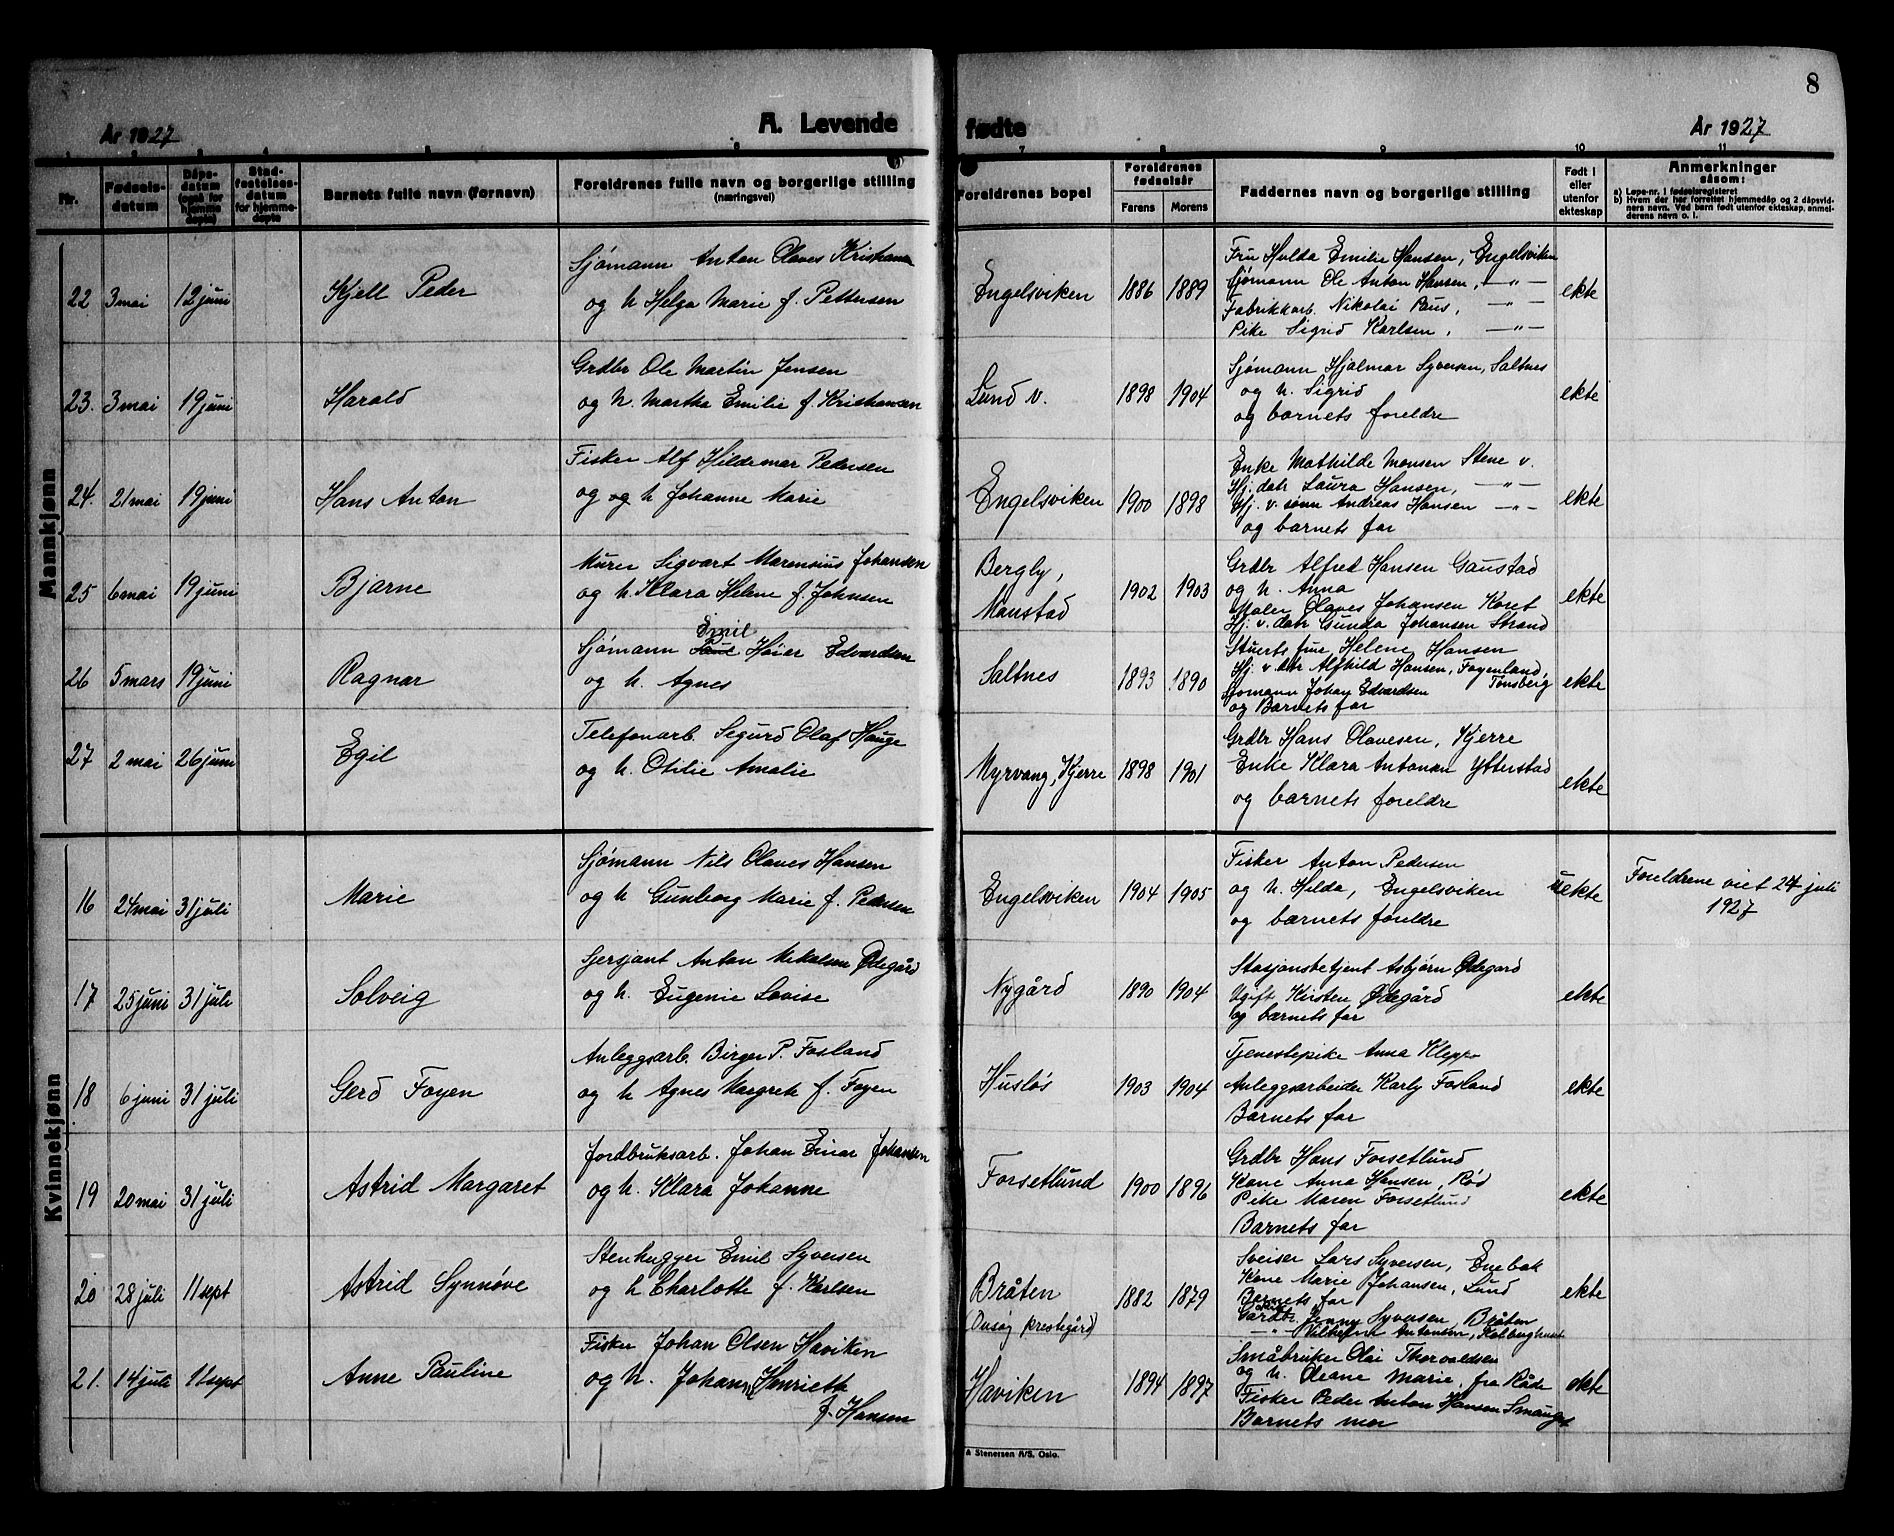 8
År 1927
A. Levende
fødte
År 1927
1 2 3 4 5 6 7 8 9 10 11
Nr.
Fødsels-
datum
Dåps-
datum
(også for
hjemme
døpte)
Stad-
festelses-
datum
for hjemme-
døpte
Barnets fulle navn (fornavn)
Foreldrenes fulle navn og borgerlige stilling
(næringsvei)
Foreldrenes bopel
Foreldrenes
fødselsår
Farens
Morens
Faddernes navn og borgerlige stilling
Født i
eller
utenfor
ekteskap
Anmerkninger
såsom:
a) Løpe-nr. i fødselsregisteret
b) Hvem der har forrettet hjemmedåp og 2 dåpsvid-
ners navn. Ved barn født utenfor ekteskap, anmel-
derens navn o. l.
Mannkjønn
22 3 mai 12 juni Kjell Peder
Sjømann Anton Olaves Kristiansen
og h Helga Marie f. Pettersen
Engelsviken 1886 1889
Fru Hulda Emilie Hansen, Engelsviken
Sjømann Ole Anton Hansen, —"—
Fabrikkarb. Nikolai Paus, —"—
Pike Sigrid Karlsen, —"—
ekte
23. 3 mai 19 juni Harald
Grdbr Ole Martin Jensen
og h. Martha Emilie f. Kristiansen
Lund v. 1898 1904
Sjømann Hjalmar Syversen, Saltnes
og h. Sigrid
og barnets foreldre
ekte
24. 21 mai 19 juni Hans Anton
Fisker Alf Hildemar Pedersen
og og h Johanne Marie
Engelsviken 1900 1898
Enke Mathilde Monsen Stene v.
Hj. datr Laura Hansen, —"—
Hj. v. sønn Andreas Hansen —"—
og barnets far
ekte
25 6 mai 19 juni Bjarne
Murer Sigvart Marensius Johansen
og h. Klara Helene f. Johnsen
Bergly,
Manstad
1902 1903
Grdbr Alfred Hansen Gaustad
og h. Anna
Maler Olaves Johansen Koret
Hj. v. datr Gunda Johansen Strand
ekte
26 5 mars 19 juni Ragnar
Emil
Sjømann Høier Edvardsen
og h. Agnes
Saltnes 1893 1890
Stuerts frue Helene Hansen
Hj. v. datr Alfhild Hansen, Føyenland,
Tønsberg
Sjømann Johan Edvardsen
og Barnets far
ekte
27 2 mai 26 juni Egil
Telefonarb. Sigurd Olaf Hauge
og h. Otilie Amalie
Myrvang, Kjerre 1898 1901
Grdbr Hans Olavesen, Kjerre
Enke Klara Antonsen Ytterstad
og barnets foreldre
ekte
Kvinnekjønn
16 24 mai 31 juli Marie
Sjømann Nils Olaves Hansen
og h Gunborg Marie f. Pedersen
Engelsviken 1904 1905
Fisker Anton Pedersen
og h. Hilda, Engelsviken
og barnets foreldre
uekte
Foreldrene viet 24 juli
1927
17 25 juni 31 juli Solveig
Sersjant Anton Mikalsen Ødegård
og h. Eugenie Lovise
Nygård 1890 1904
Stasjonsbetjent Asbjørn Ødegard
Ugift Kirsten Ødegård
og barnets far
ekte
18 6 juni 31 juli Gerd Foyen
Anleggsarb. Birger P. Fosland
og h Agnes Margrete f. Foyen
Husløs 1903 1904
Tjenestepike Anna Klepp
Anleggsarbeider Karly Fosland
Barnets far
ekte
19 20 mai 31 juli Astrid Margaret
Jordbruksarb. Johan Einar Johansen
og h. Klara Johanne
Forsetlund 1900 1896
Grdbr Hans Forsetlund
Kone Anna Hansen, Rød
Pike Maren Forsetlund
Barnets far
ekte
20 28 juli 11 sept Astrid Synnøve
Stenhugger Emil Syversen
og h Charlotte f. Karlsen
Bråten
(Onsøy prestegård)
1882 1879
Sveiser Lars Syversen, Enebak
Kone Marie Johansen, Lund
Barnets far
Gardbr. Jenny Syversen, Bråten
—"— Antonsen,
ekte
21. 14 juli 11 sept Anne Pauline
Fisker Johan Olsen Haviken
og h. Johanne Henriette
f. Hansen
Haviken 1894 1897
Småbruker Olai Thorvaldsen
og h. Oleane Marie, fra Råde
Fisker Peder Anton Hansen Smauget
Barnets mor
ekte
A Stenersen A/S. Oslo.